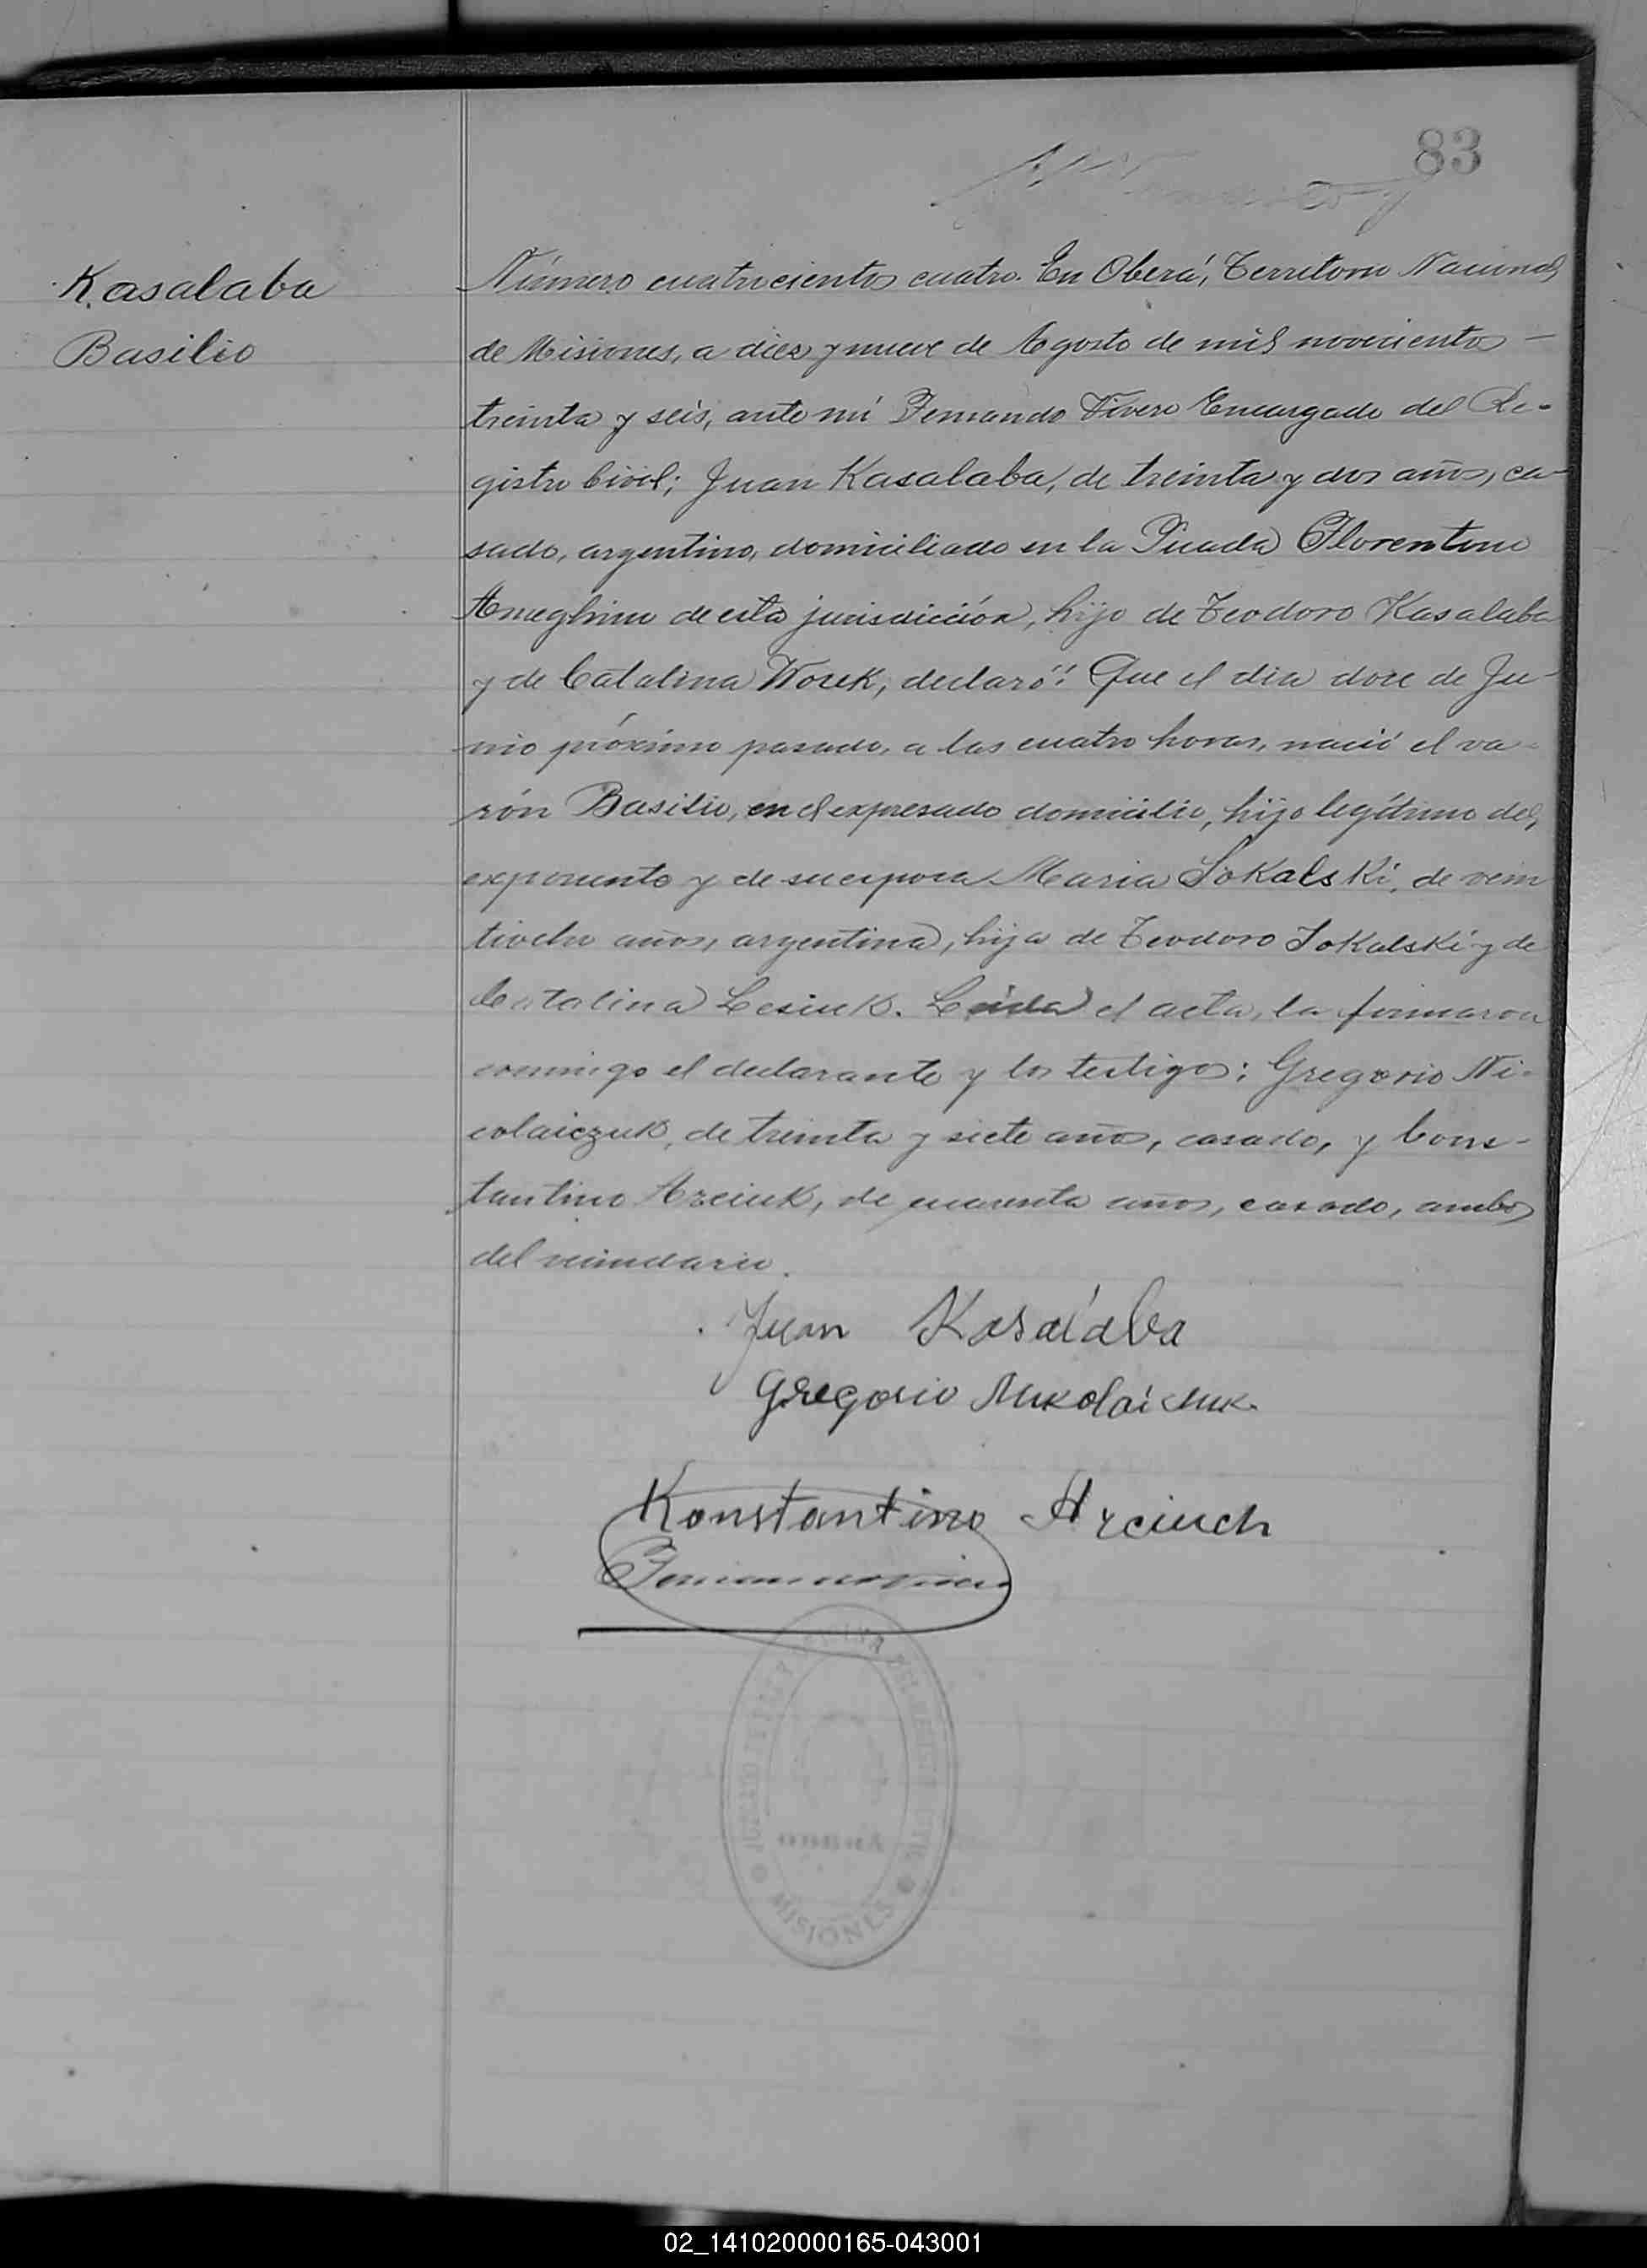 83
Kasalaba
Basilio
Número cuatrocientos cuatro. En Oberá, Territorio Nacional
de Misiones, a diez y nueve de Agosto de mil novecientos
treinta y seis, ante mí Fernando Vivero Encargado del Re-
gistro Civil; Juan Kasalaba, de treinta y dos años, ca-
sado, argentino, domiciliado en la Picada Florentino
Ameghino de esta jurisdicción, hijo de Teodoro Kasalaba
y de Catalina Wouk, declaró: Que el día doce de Ju-
nio próximo pasado, a las cuatro horas, nació el va-
rón Basilio, en el expresado domicilio, hijo legítimo del
exponente y de su esposa Maria Sokalski, de vein
tiocho años, argentina, hija de Teodoro Sokalski y de
Catalina Lesiuk. Leída el acta, la firmaron
conmigo el declarante y los testigos: Gregorio Ni-
colaiczuk, de treinta y siete años, casado, y Cons-
tantino Arciuk, de cuarenta años, casado, ambos
del vecindario.
Juan Kasalaba
Gregorio Mukolaichuk.
Konstantino Arciuch
MISIONES
02_141020000165-043001